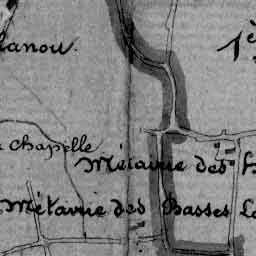 lanou.
1è
Chapelle
Métairie des H
Métairie des Basses L